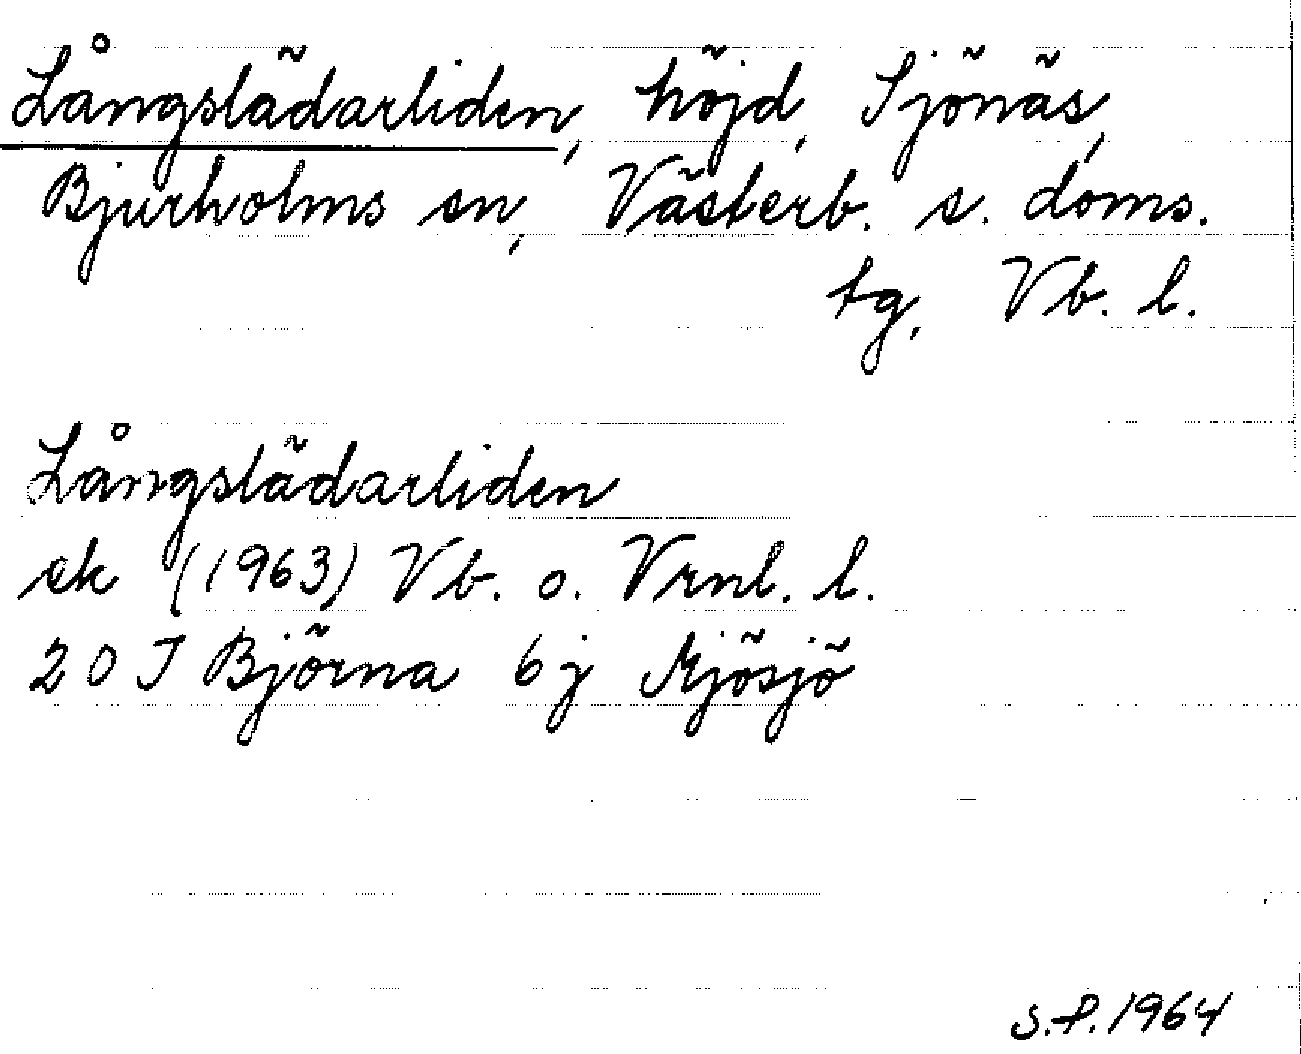 Långslädarliden, höjd, Sjönäs,
Bjurholms sn, Västerb. s. doms.
tg, Vb. l.
Långslädarliden
ek (1963) Vb. o. Vrnl. l.
20 J Björna 6j Mjösjö
S.P. 1964